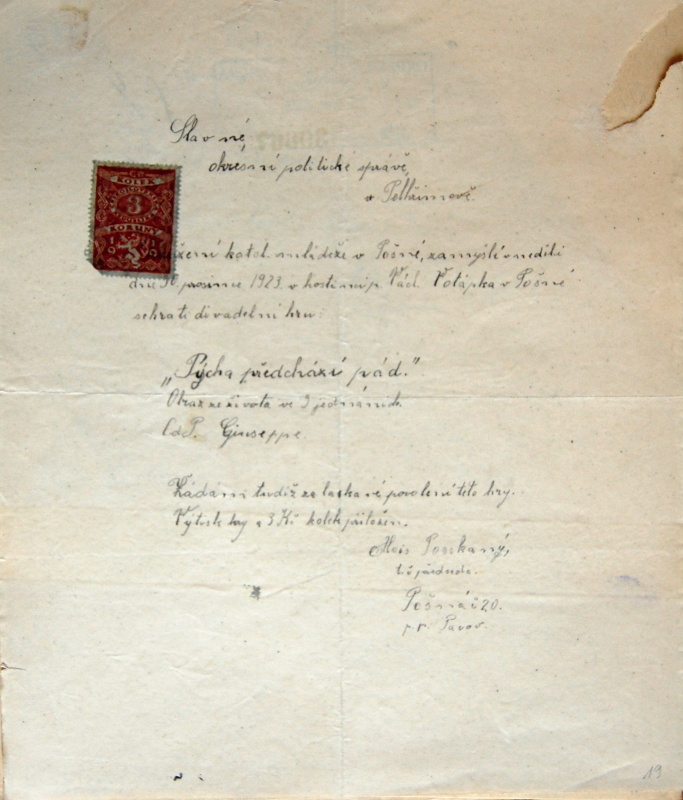 Slavné
okresní politické správě
v Pelhřimově.
KOLEK
3
KORUNY
Sdružení katol. mládeže v Pošné, zamýšlí v neděli
dne 30. prosince 1923. v hostinci p. Václ. Votápka v Pošné
sehrati divadelní hru:
„Pýcha předchází pád."
Obraz ze života ve 3 jednáních.
Od P. Giuseppe.
Žádám tudíž za laskavé povolení této hry.
Výtisk hry a 3 Kč kolek přiložen.
Alois
t. č. předseda.
Pošná č 20.
p. Pacov.
19